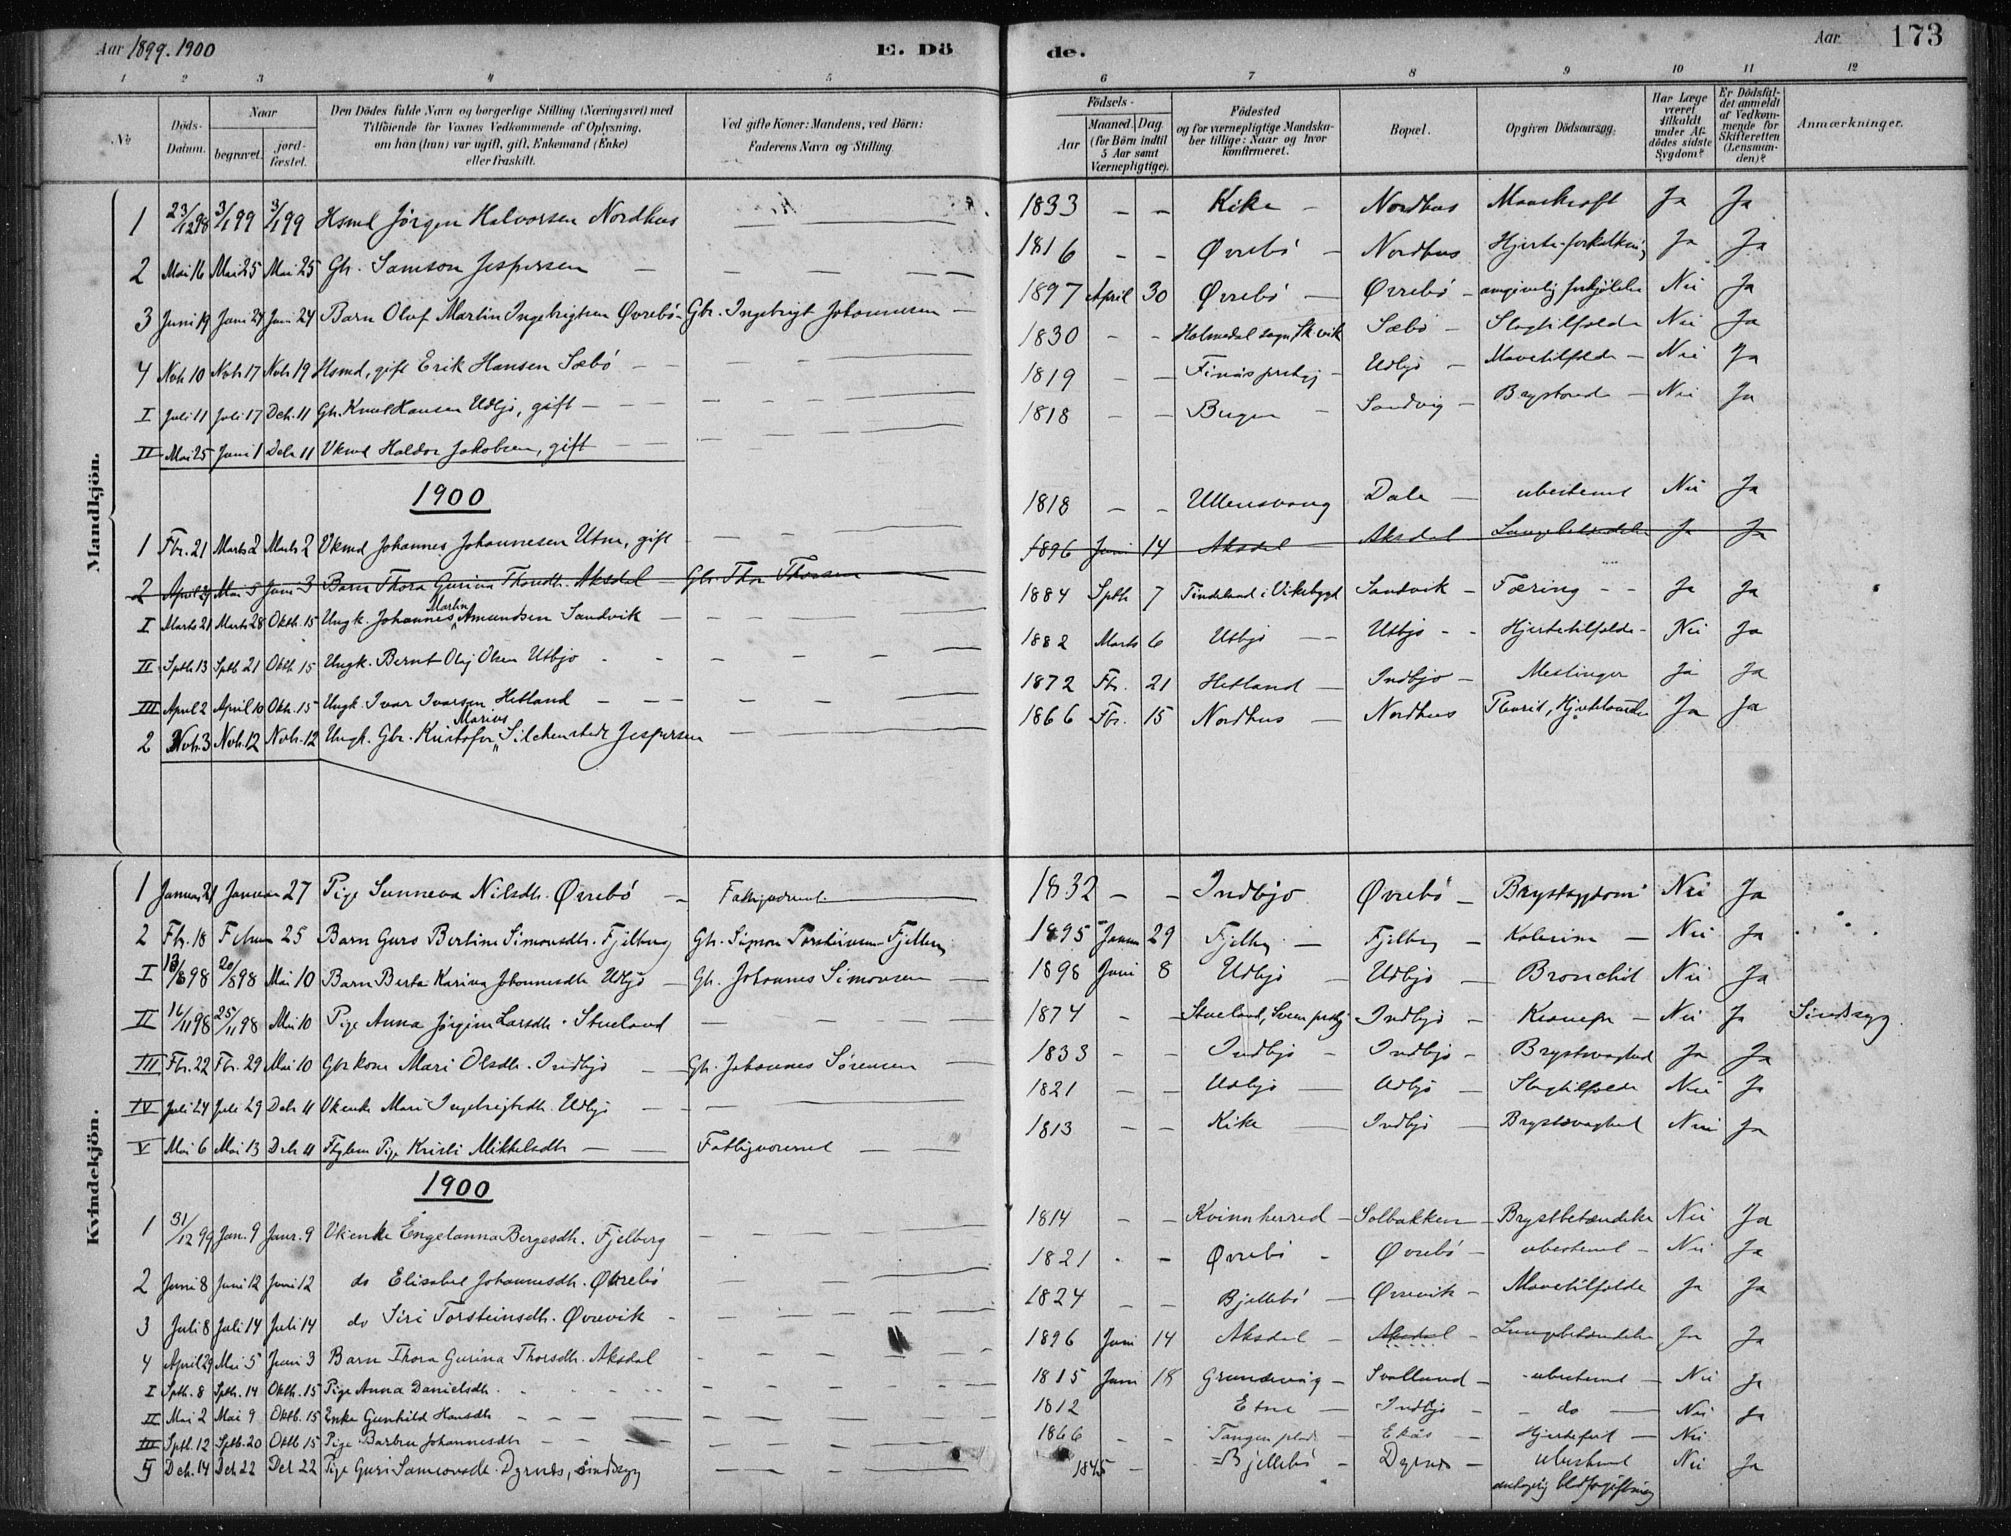 Aar 1899. 1900 E. Dö
de. Aar 173
1 2 3 4 5 6 7 8 9 10 11 12
No
Döds-Datum.
Naar
begravet.
jordfæstet.
Den Dödes fulde Navn og borgerlige Stilling (Næringsvei) med Tilföiende for Voxnes Vedkommende af Oplysning, om han (hun) var ugift, gift, Enkemand (Enke) eller fraskilt.
Ved gifte Koner: Mandens, ved Börn: Faderens Navn og Stilling.
Födsels-
Aar
Maaned. Dag
(for Börn indtil 5 Aar samt Værnepligtige).
Födested og for værnepligtige Mandskaber tillige: Naar og hvor konfirmeret.
Bopæl.
Opgiven Dödsaarsag.
Har Læge været tilkaldt under Afdödes sidste Sygdom?
Er Dödsfaldet anmeldt af Vedkommende for Skifteretten (Lensmanden)?
Anmærkninger.
Mandkjön.
1 23/12 98 3/1 99 3/1 99 Hsmd Jörgen Halvorsen Nordhus — 1833 – – Kike – Nordhus Mavekræft Ja Ja
2 Mai 16 Mai 25 Mai 25 Gb. Samson Jespersen — 1816 – – Øvrebö – Nordhus Hjerte-forkalkning Ja Ja
3 Juni 19 Juni 24 Juni 24 Barn Olof Martin Ingebrigtsen Øvrebö – Gbr. Ingebrigt Johannesen – 1897 April 30 Øvrebö – Øvrebö – angivelig forkjölelse Nei Ja
4 Novb 10 Novb 17 Novb 19 Hsmd, gift Erik Hansen Sæbö – – 1830 – – Holmedal sogn, Sk.vik Sæbö – Slagtilfælde Nei Ja
I Juli 11 Juli 17 Decb. 11 Gb. Knud Hansen Udbjo, gift – 1819 – – Finås prstgj – Udbjö – Mavetilfælde – Nei Ja
II Mai 25 Juni 1 Decb 11 Vkmd Haldor Jakobsen, gift – 1818 – – Bergen – Sandvig – Brystonde – Nei Ja
1900
1 Fbr. 21 Marts 2 Marts 2 Vkmd Johannes Johannesen Utne, gift – 1818 – – Ullensvang Dale – ubestemt Nei Ja
2 April 29 Mai 5 Juni 3 Barn Thora Gurina Thorsdtr. Aksdal – Gbr. Thor Thorsen 1896 Juni 14 Aksdal – Aksdal – Lungebetændelse Ja Ja
I Marts 21 Marts 28 Oktb. 15 Ungk. Johannes Martin Amundsen Sandvik – 1884 Sptb 7 Tindeland i Vikebygd Sandvik – Tæring – – Ja Ja
II Sptb 13 Sptb 21 Oktb 15 Ungk. Bernt Olaj Olsen Utbjo – 1882 Marts 6 Utbjo – – Utbjo – – Hjertetilfælde – Nei Ja
III April 2 April 10 Oktb. 15 Ungk. Ivar Ivarsen Hetland – 1872 Fbr. 21 Hetland – Indbjo – Meslinger Ja Ja
2 Novb. 3 Novb. 12 Novb. 12 Ungk. Gbr. Kristofer Marius Silchenstedt Jespersen – 1866 Fbr. 15 Nordhus – Nordhus Pleurit, Hjertelammelse Ja Ja
Kvindekjön.
1 Januar 21 Januar 27 Pige Sunneva Nilsdtr. Øvrebö – Fattigvæsenet. 1832 – – Indbjo Øvrebö – Brystsygdom Nei Ja
2 Fbr. 18 Februar 25 Barn Guro Bertine Simonsdtr. Fjelberg Gb. Simon Torsteinsen Fjelberg 1895 Januar 29 Fjelberg – Fjelberg – Kolerine – Nei Ja
I 13/8 98 20/8 98 Mai 10 Barn Berta Karina Johannesdtr Udbjö – Gb. Johannes Simonsen – 1898 Juni 8 Udbjö – Udbjö – Bronchit Nei Ja
II 16/11 98 25/11 98 Mai 10 Pige Anna Jörgine Larsdtr. Stueland – 1874 – – Stueland, Sveen prstgj Indbjö – Kramper – Nei Ja Sindssyg.
III Fbr. 22 Fbr. 29 Mai 10 Gbrkone Mari Olsdtr. Indbjö – Gb. Johannes Sörensen – 1833 – – Indbjö – Indbjö – Brystsvaghed Ja Ja
IV Juli 24 Juli 29 Decb 11 Vkenke Mari Ingebrigtsdtr. Udbjö – 1821 – – Udbjö – Udbjö – Slagtilfælde Nei Ja
V Mai 6 Mai 13 Decb 11 Ftglem Pige Kristi Mikkelsdtr – Fattigvæsenet – 1813 – – Kike – Indbjö – Brystsvaghed Nei Ja
1900
1 31/12 99 Jan. 9 Janr. 9 Vkenke Engelanna Bergesdtr. Fjelberg – 1814 – – Kvinnherred – Solbakken – Brystbetændelse Nei Ja
2 Juni 8 Juni 12 Juni 12 do Elisabet Johannesdtr. Øvrebö – 1821 – – Øvrebö – Øvrebö – ubestemt – Nei Ja
3 Juli 8 Juli 14 Juli 14 do Siri Torsteinsdtr. Øvrevik – 1824 – – Bjellebö – Øvrevik – Mavetilfælde Ja Ja
4 April 29 Mai 5 Juni 3 Barn Thora Gurina Thorsdtr. Aksdal – 1896 Juni 14 Aksdal – Aksdal – Lungebetændelse Ja Ja
I Sptb. 8 Sptb. 14 Oktb. 15 Pige Anna Danielsdtr. – 1815 Juni 18 Grundevåg – Svolland – ubestemt – Nei Ja
II Mai 2 Mai 9 Oktb. 15 Enke Gunhild Hansdtr – 1812 Etne – Indbjo – do – Nei Ja
III Sptb. 12 Sptb. 20 Oktb 15 Pige Barbru Johannesdtr – 1866 – – Tangen Ekås – Hjertefeil – Nei
5 Decb. 14 Decb 22 Decb 22 Pige Guri Samsonsdtr. Dyrnes, sindssyg – 1845 – Bjellebö – Dyrnes – ubestemt Nei Ja
antagelig blodforgiftning